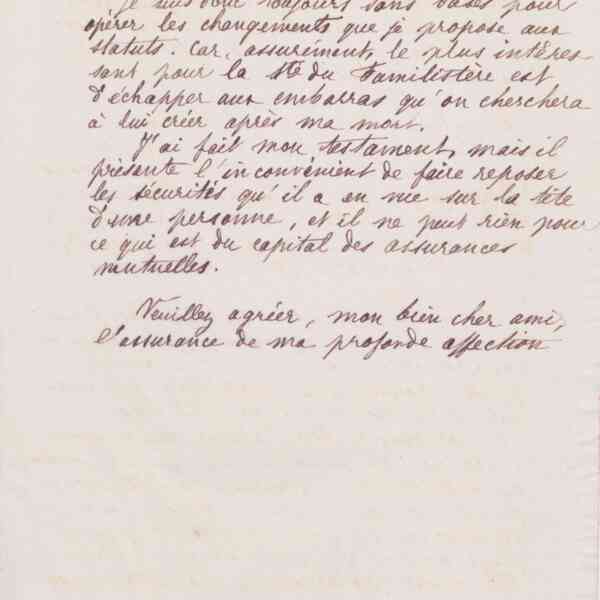 Je suis donc toujours sans bases pour
opérer les changements que je propose aux
statuts. Car, assurément, le plus intéres-
sant pour la Sté du Familistère est
d'échapper aux embarras qu'on cherchera
à lui créer après ma mort.
J'ai fait mon testament, mais il
présente l'inconvénient de faire reposer
les sécurités qu'il a en vue sur la tête
d'une personne, et il ne peut rien pour
ce qui est du capital des assurances
mutuelles.
Veuillez agréer, mon bien cher ami,
l'assurance de ma profonde affection